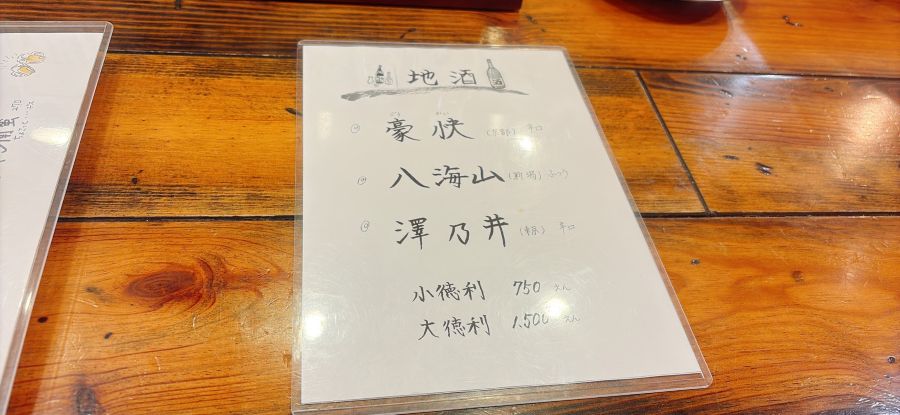 地酒
豪快 (京都) 辛口
八海山 (新潟) ふつう
澤乃井 (東京) 辛口
小徳利 750 えん
大徳利 1,500 えん